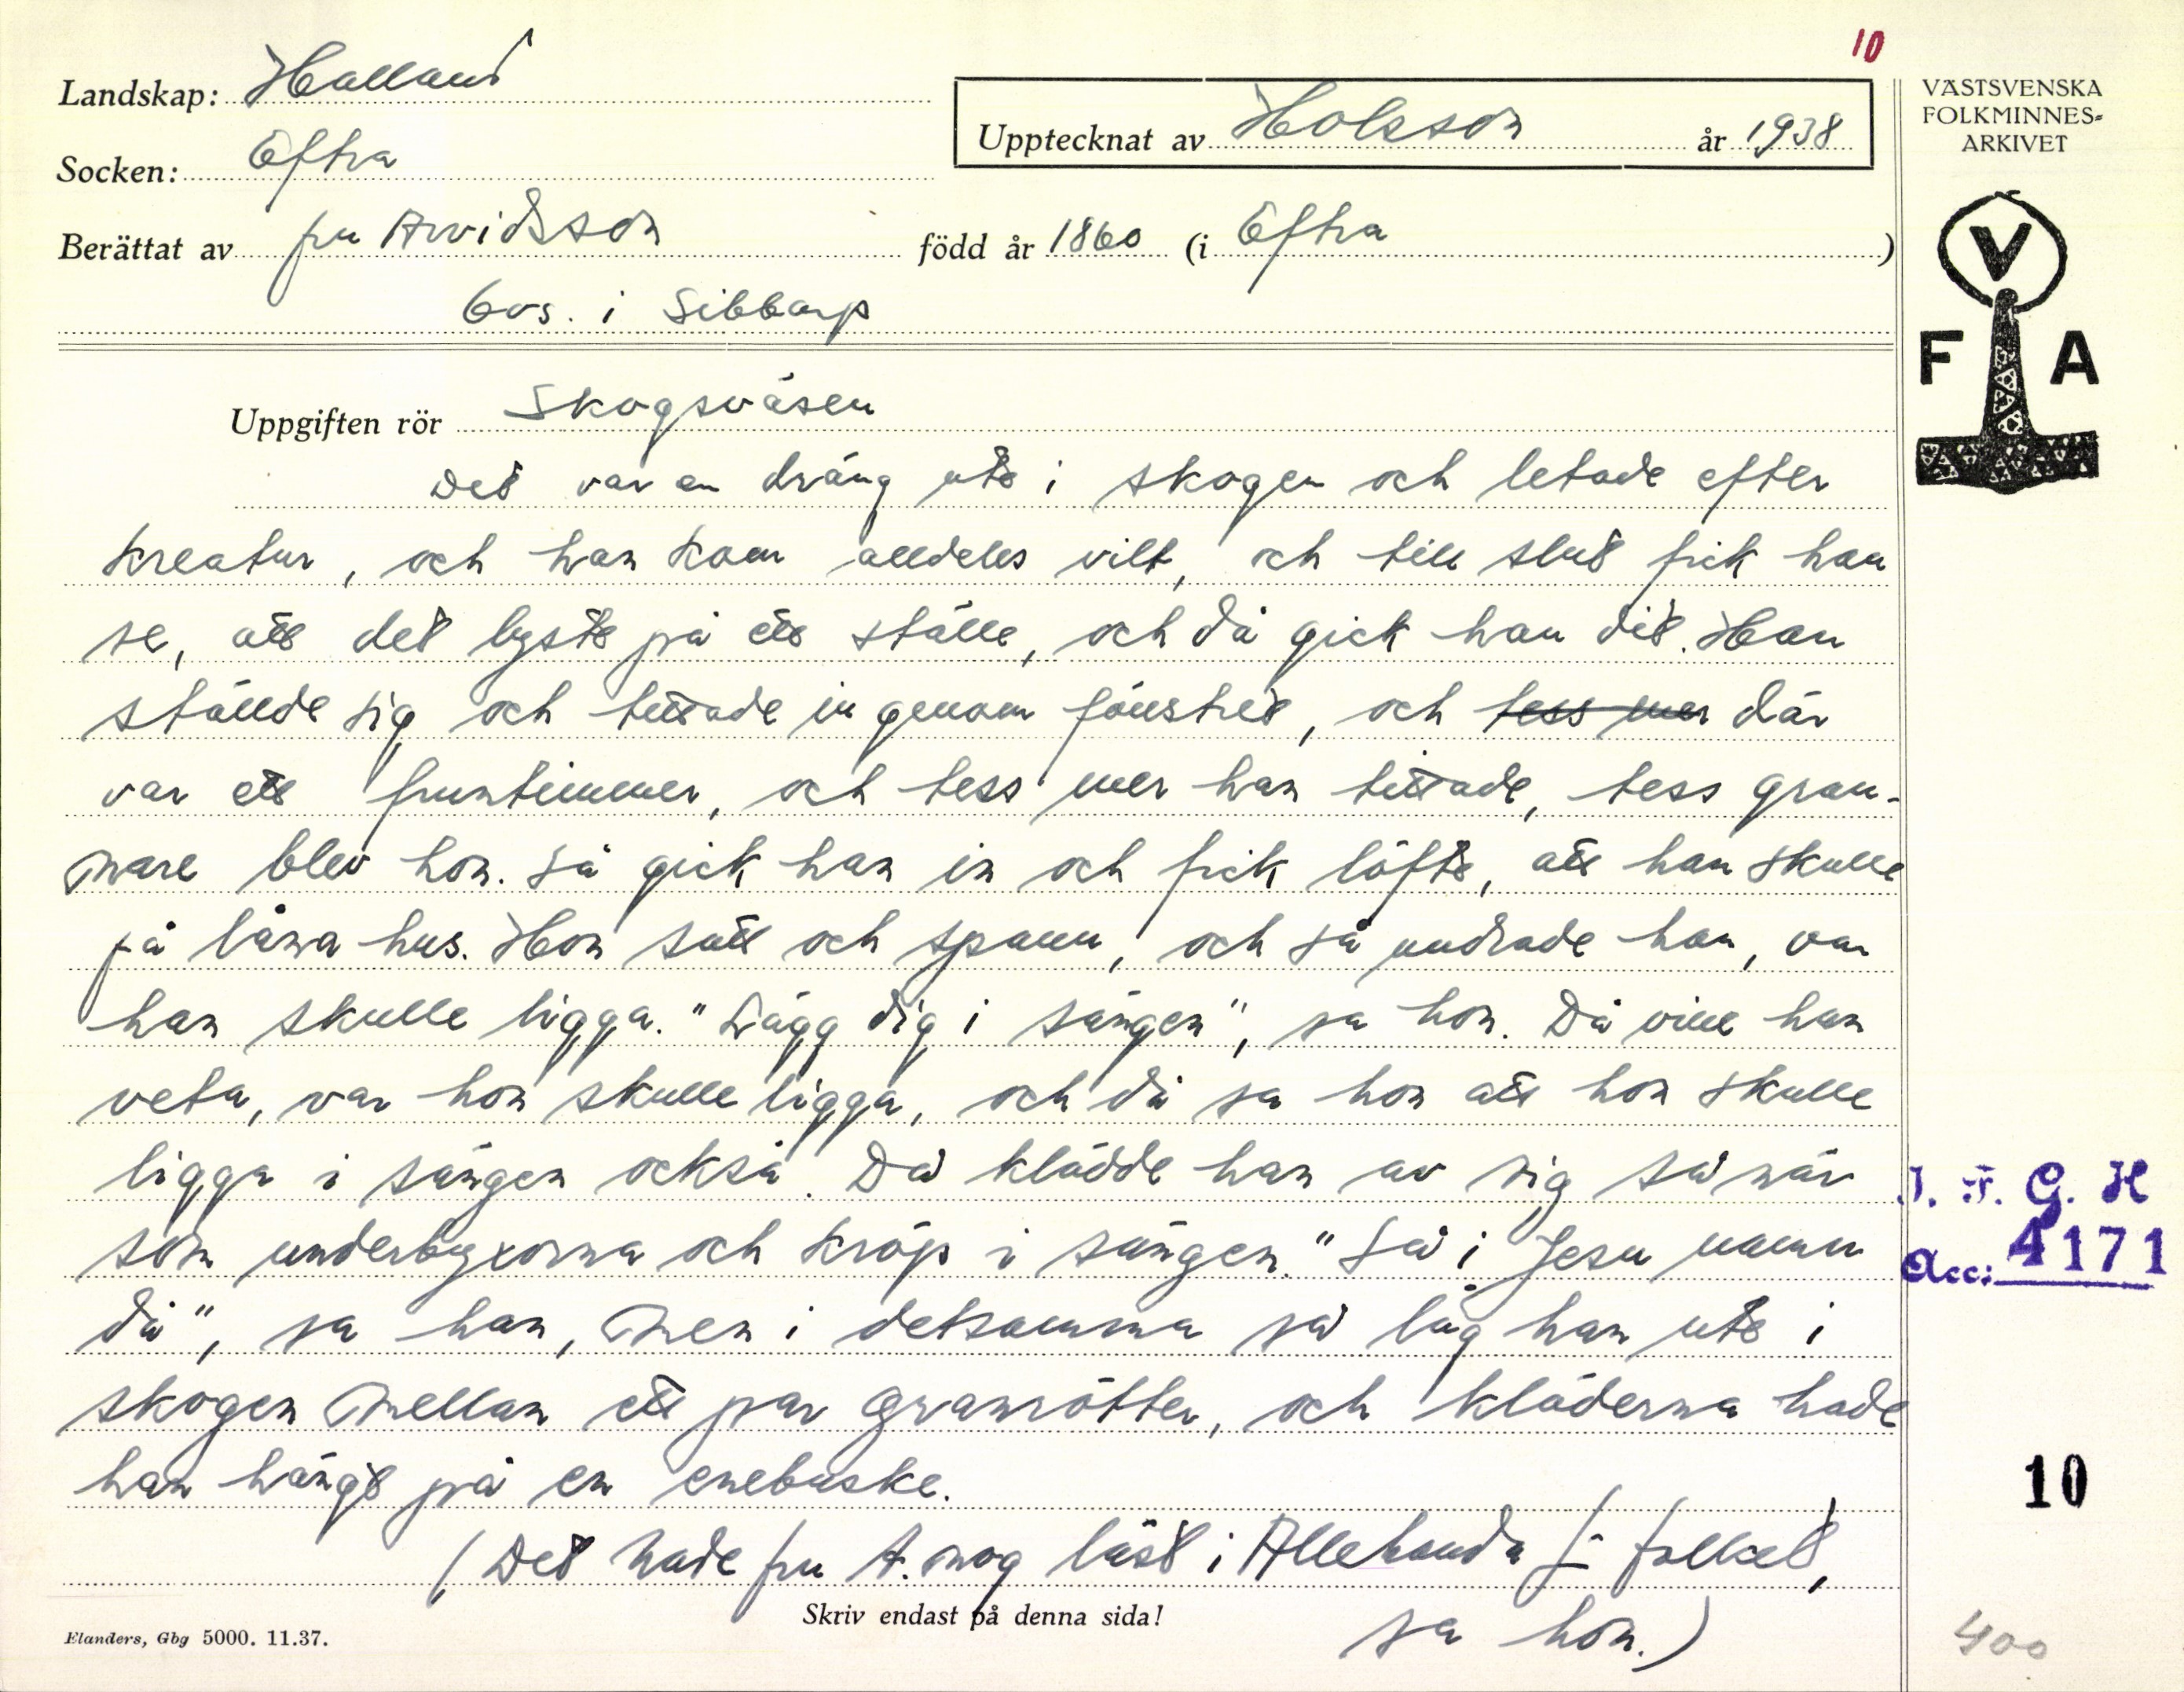 10
Landskap: Halland
Upptecknat av Holsson år 1938
VÄSTSVENSKA
FOLKMINNES-
ARKIVET
Socken: Eftra
Berättat av fru Arvidsson född år 1860 (i Eftra )
bos. i Sibbarp
V
F A
Uppgiften rör Skogsväsen
Det var en dräng ute i skogen och letade efter
kreatur, och han kom alldeles vilt, och till slut fick han
se, att det lyste på ett ställe, och då gick han dit. Han
ställde sig och tittade in genom fönstret, och tess mer där
var ett fruntimmer, och tess mer han tittade, tess gran-
nare blev hon. Så gick han in och fick löfte, att han skulle
få låna hus. Hon satt och spann, och så undrade han, var
han skulle ligga. "Lägg dig i sängen", sa hon. Då ville han
veta, var hon skulle ligga, och då sa hon att hon skulle
ligga i sängen också. Då klädde han av sig så när
som underbyxorna och kröp i sängen. "Så i Jesu namn
då", sa han, men i detsamma så låg han ute i
skogen mellan ett par granrötter, och kläderna hade
han hängt på en enebuske.
(Det hade fru A. nog läst i Allehanda f folket,
sa hon.)
Skriv endast på denna sida!
Elanders, Gbg 5000. 11.37.
I. F. G. H
Acc: 4171
10
400